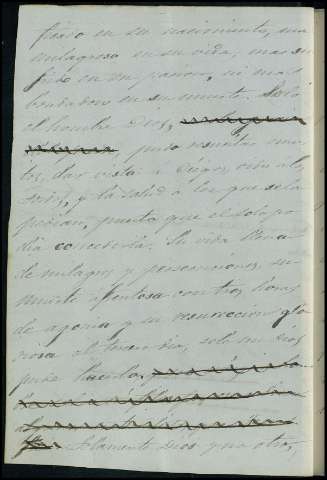 en su nacimiento, mas
milagroso en su vida, mas su
frido en su pasion, ni mas
bondadoso en su muerte. Solo
el hombre Dios,
pudo resucitar muer
tos, dar vista á ciegos, oido á los
sordos, y la salud á los que se la
pedian, puesto que el solo po
dia concederla. Su vida llena
de milagros y persecuciones, su
muerte afrentosa con tres horas
de agonia y su resurreccion glo
riosa al tercer dia, solo un Dios
pudo hacerlo.
Solamente Dios y no otro,